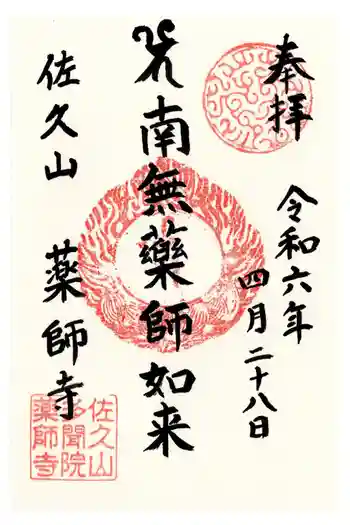 奉拝
令和六年
四月二十八日
南無薬師如来
佐久山
薬師寺
佐久山
多聞院
薬師寺